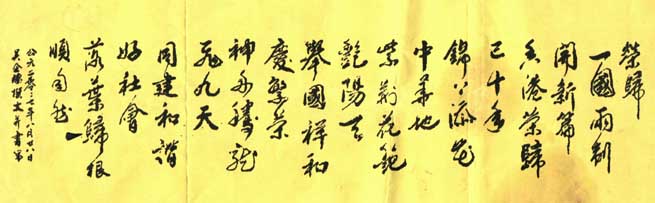 榮歸
一國兩制
開新篇
香港榮歸
已十年
錦
中華地
紫荊花
艷陽天
舉國祥和
慶繁榮
神舟騰龍
飛九天
同建和諧
好社會
落葉歸根
順自然
公元二零七年八月廿八日
撰文并書